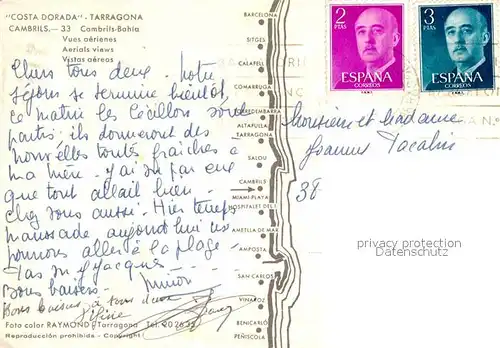 "COSTA DORADA" - TARRAGONA
CAMBRILS.— 33 Cambrils-Bahía
Vues aériennes
Aerials views
Vistas aéreas
Chers tous deux. Notre
séjour se termine bientôt
ce matin les Cécillon sont
partis; ils donneront des
nouvelles toutes fraîches à
ma mère. J'ai su par eux
que tout allait bien
chez vous aussi. Hier temps
maussade aujourd'hui nous
pouvons aller à la plage.
Jacques
Bons baisers. Ninon
Bons baisers à tous deux
Foto color RAYMOND / Tarragona Tel. 202632
Reproducción prohibida - Copyright
BARCELONA
SITGES
CALAFELL
COMARRUGA
TORREDEMBARRA
ALTAFULLA
TARRAGONA
SALOU
CAMBRILS
MIAMI-PLAYA
HOSPITALET DEL I
AMETLLA DE MAR
AMPOSTA
SAN CARLOS
VINAROZ
BENICARLO
PEÑISCOLA
2
PTAS
ESPAÑA
CORREOS
3
PTAS
ESPAÑA
CORREOS
Monsieur et Madame
Joannes
38
privacy protection
Datenschutz